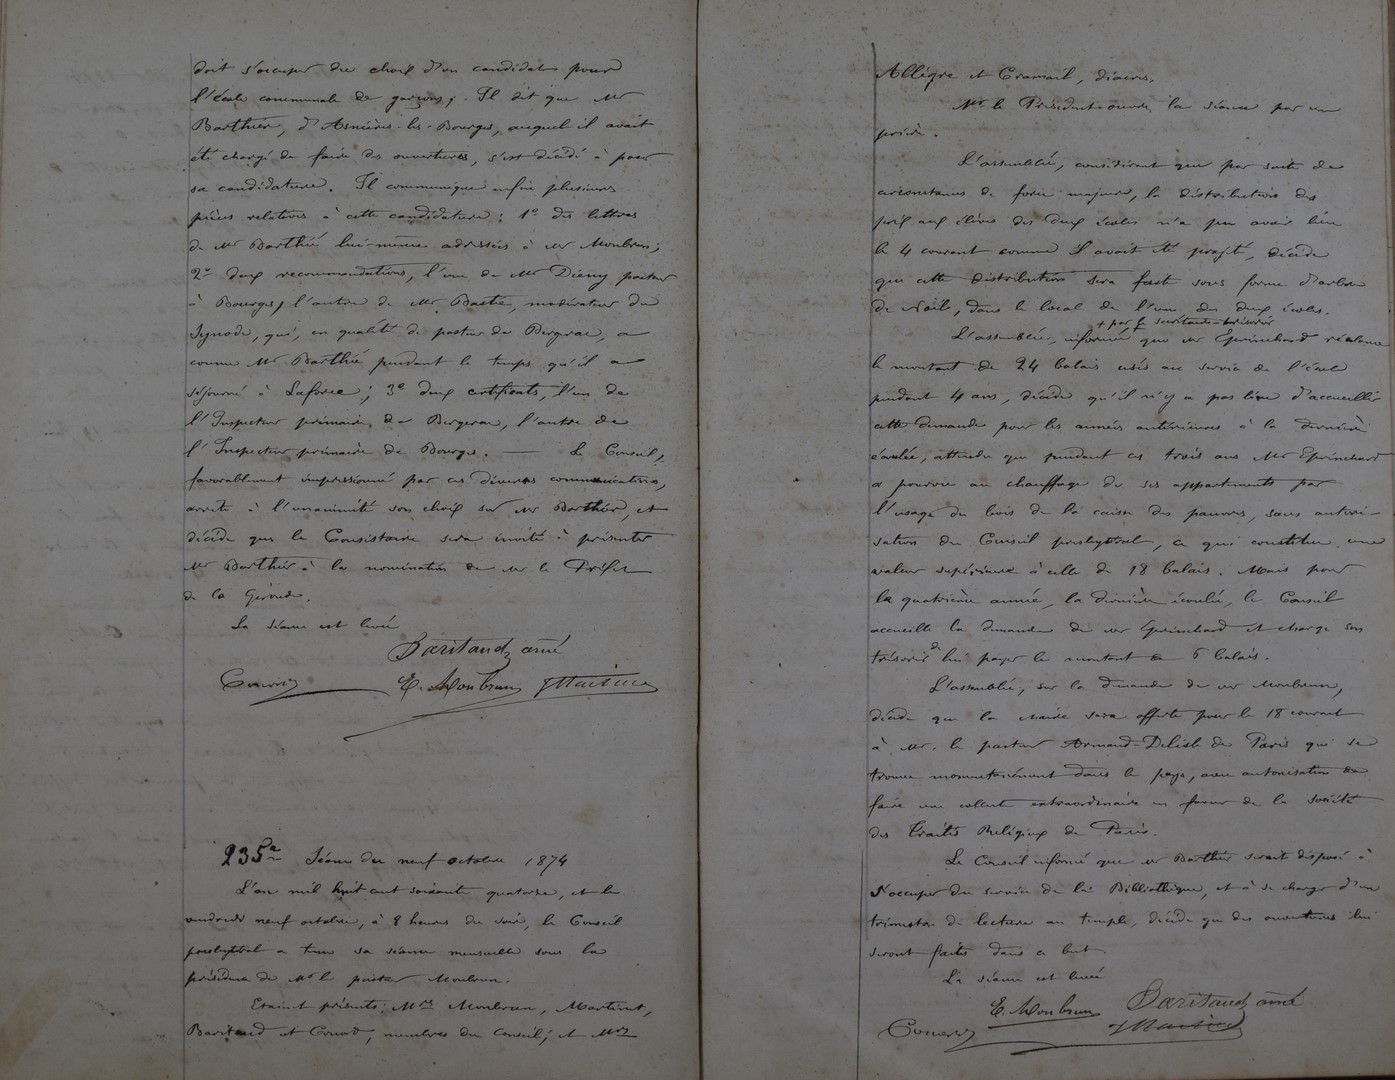 doit s'occuper du choix d'un candidat pour
l'école communale de garçons. Il dit que Mr
Barthié, d'Asnières-les-Bourges, auquel il avait
été chargé de faire des ouvertures, s'est décidé à poser
sa candidature. Il communique enfin plusieurs
pièces relatives à cette candidature : 1º des lettres
de Mr Barthié lui-même adressées à Mr Monbrun ;
2º deux recommandations, l'une de Mr Diény pasteur
à Bourges, l'autre de Mr Bastie, modérateur du
Synode, qui, en qualité de pasteur de Bergerac, a
connu Mr Barthié pendant le temps qu'il a
séjourné à Laforce ; 3º deux certificats, l'un de
l'Inspecteur primaire de Bergerac, l'autre de
l'Inspecteur primaire de Bourges. — Le Conseil,
favorablement impressionné par ces diverses communications,
arrête à l'unanimité son choix sur Mr Barthié, et
décide que le Consistoire sera invité à présenter
Mr Barthié à la nomination de Mr le Préfet
de la Gironde.
La séance est levée
Baritaud aîné
E. Monbrun
235e Séance du neuf octobre 1874
L'an mil huit cent soixante quatorze, et le
vendredi neuf octobre, à 8 heures du soir, le Conseil
presbytéral a tenu sa séance mensuelle sous la
présidence de Mr le pasteur Monbrun.
Etaient présents : Mrs Monbrun, Martinet,
Baritaud et , membres du Conseil ; et Mrs
Allègre et , diacres.
Mr le Président ouvre la séance par une
prière.
L'assemblée, considérant que par suite de
circonstances de force majeure, la distribution des
prix aux élèves des deux écoles n'a pu avoir lieu
le 4 courant comme l'avait été projeté, décide
que cette distribution sera faite sous forme d'arbre
de Noël, dans le local de l'une des deux écoles.
+ par le secrétaire-trésorier
L'assemblée, informée que Mr Eprinchard réclame
le montant de 24 balais usés au service de l'école
pendant 4 ans, décide qu'il n'y a pas lieu d'accueillir
cette demande pour les années antérieures à la dernière
écoulée, attendu que pendant ces trois ans Mr Eprinchard
a pourvu au chauffage de ses appartements par
l'usage du bois de la caisse des pauvres, sans autori-
sation du Conseil presbytéral, ce qui constitue une
valeur supérieure à celle de 18 balais. Mais pour
la quatrième année, la dernière écoulée, le Conseil
accueille la demande de Mr Eprinchard et charge son
trésorier de lui payer le montant de 6 balais.
L'assemblée, sur la demande de Mr Monbrun,
décide que la chaire sera offerte pour le 18 courant
à Mr. le pasteur Armand-Delille de Paris qui se
trouve momentanément dans le pays, avec autorisation de
faire une collecte extraordinaire en faveur de la société
des Traités Religieux de Paris.
Le Conseil informé que Mr Barthié serait disposé à
s'occuper du service de la Bibliothèque, et à se charger d'un
trimestre de lecture au temple, décide que des ouvertures lui
seront faites dans ce but.
La séance est levée
E. Monbrun Baritaud aîné